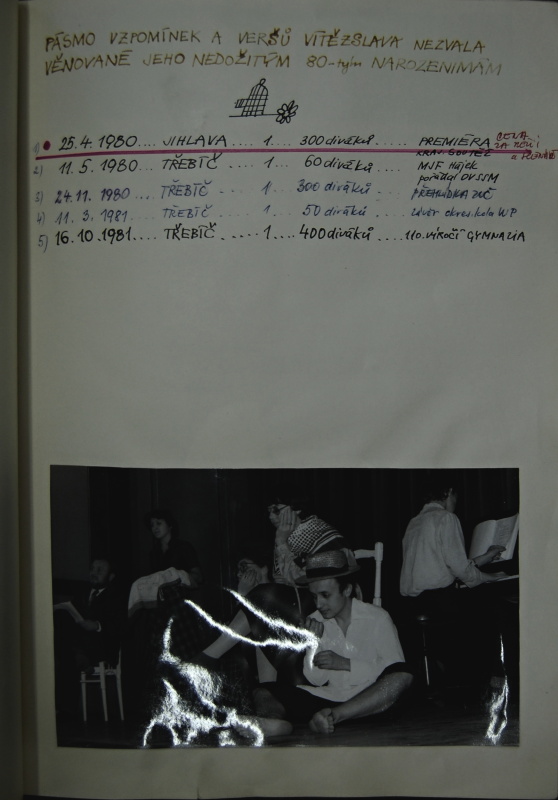 PÁSMO VZPOMÍNEK A VERŠŮ VÍTĚZSLAVA NEZVALA
VĚNOVANÉ JEHO NEDOŽITÝM 80-tým NAROZENINÁM
1) 25.4. 1980.... JIHLAVA ..... 1... 300 diváků ..... PREMIÉRA CENA
2) 11.5. 1980.... TŘEBÍČ ..... 1.... 60 diváků ..... MJF Hájek
pořádal OVSSM
3) 24.11. 1980.... TŘEBÍČ ..... 1 .... 300 diváků .... PŘEHLÍDKA
4) 11. 3. 1981.... TŘEBÍČ ..... 1.... 50 diváků ..... závěr okres. kola WP
5) 16.10.1981.... TŘEBÍČ ..... 1.... 400 diváků ..... 110. VÝROČÍ GYMNÁZIA